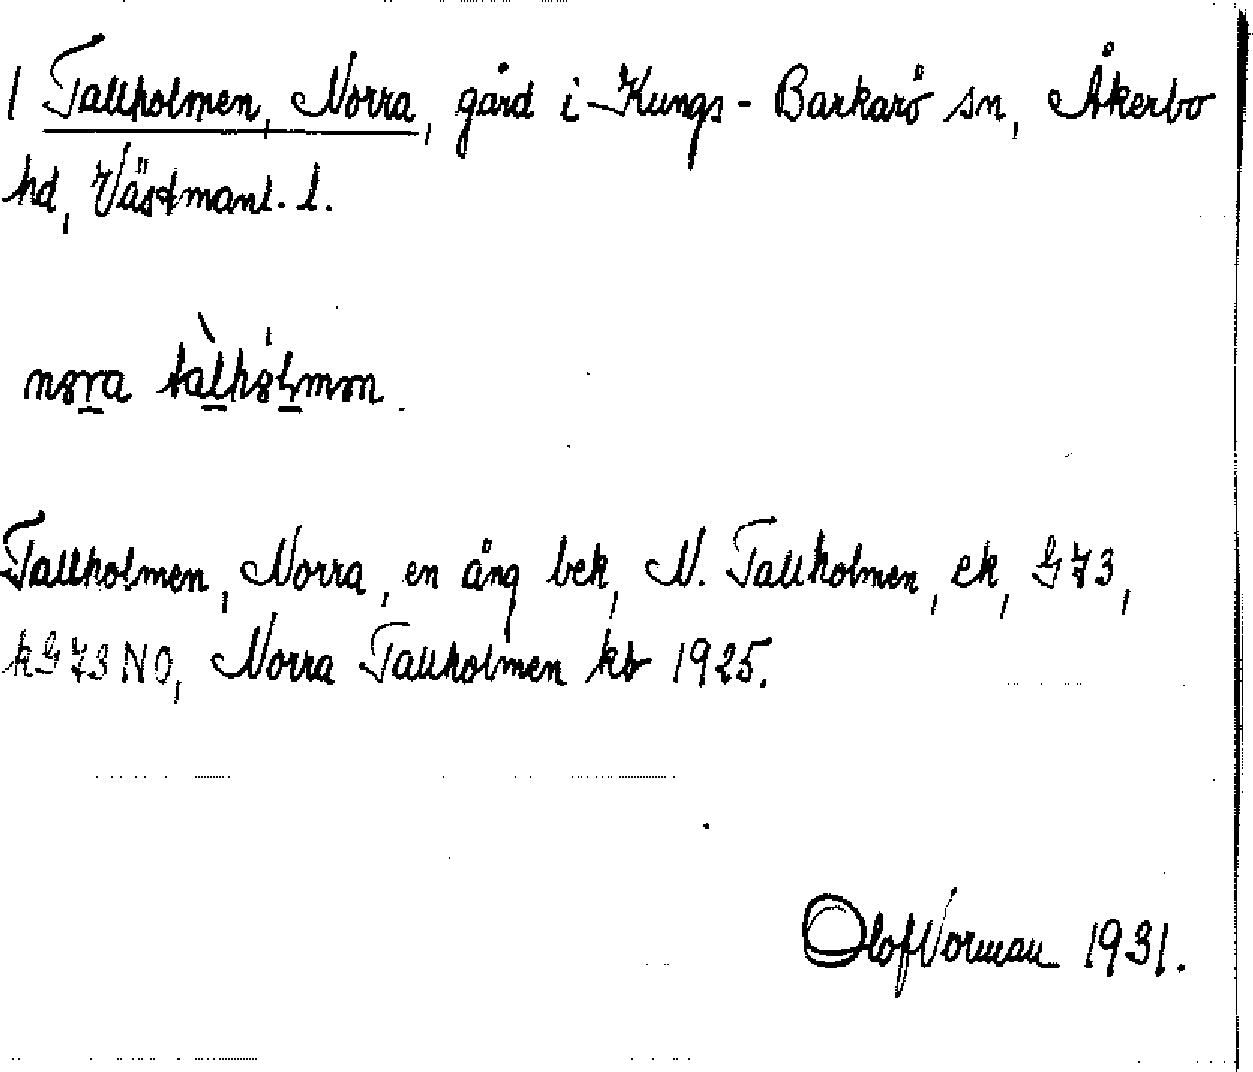 1 Tallholmen, Norra, gård i Kungs-Barkarö sn, Åkerbo
hd, Västmanl. l.
Tallholmen, Norra, en äng bek, N. Tallholmen, ek, G73,
kG73NO, Norra Tallholmen kb 1925.
Olof Vorman 1931.